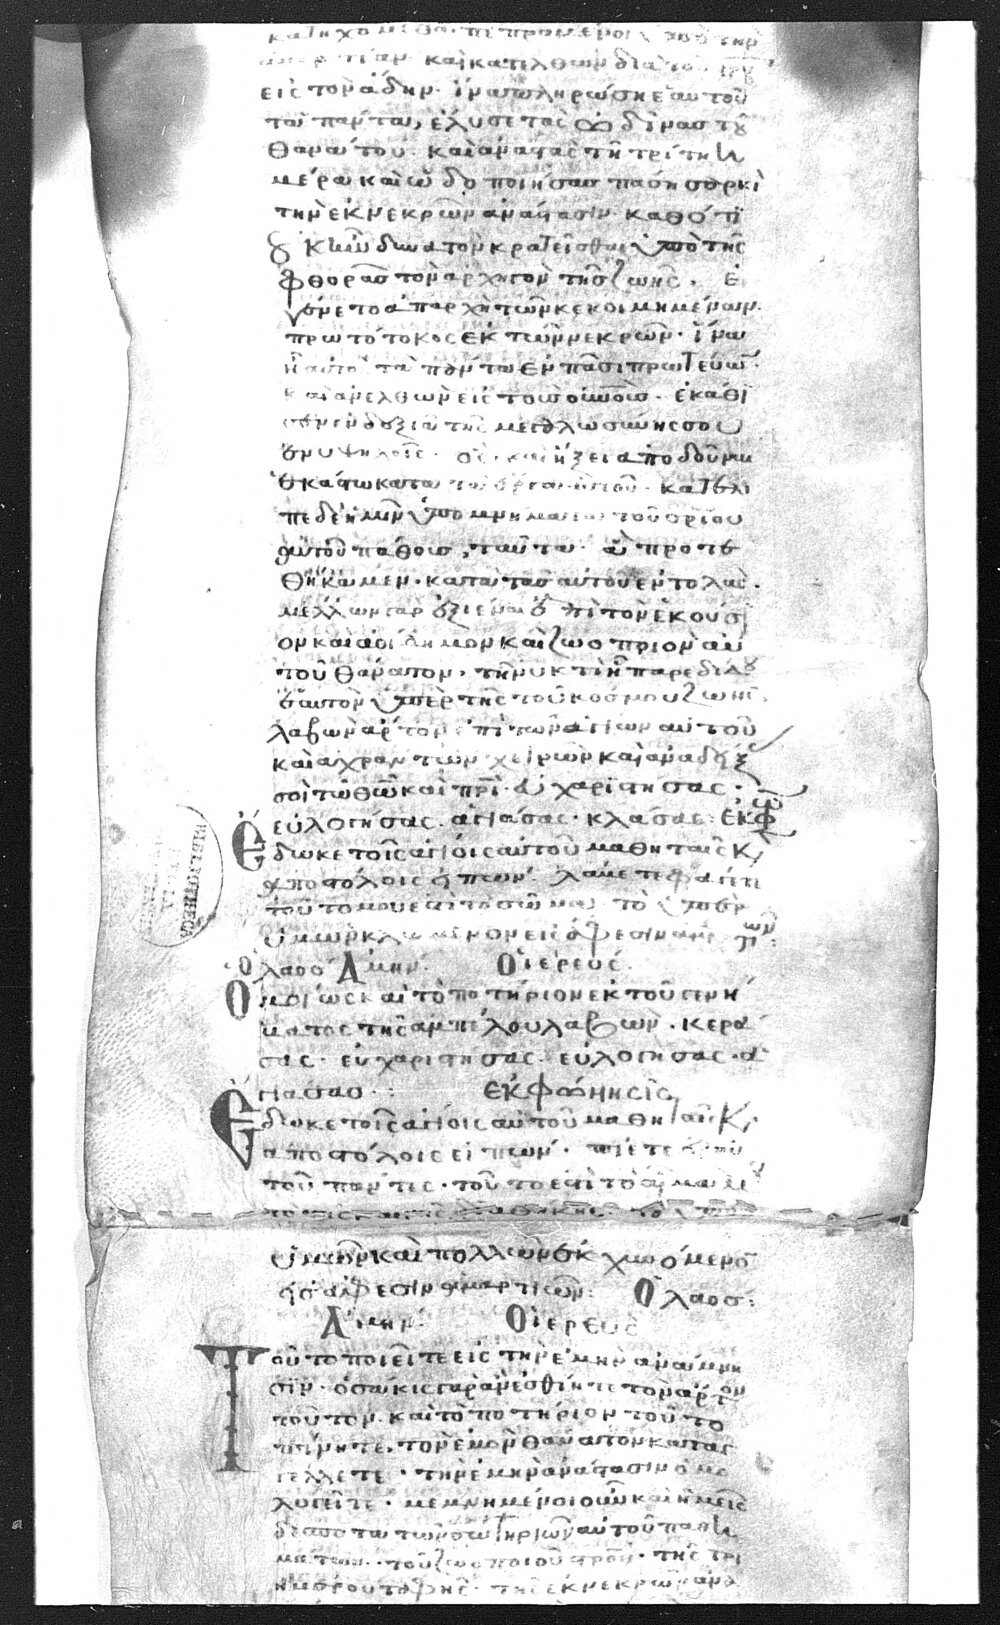 κατηχομεθα· πεπραμενοι ὑπὸ τὴν
ἁμαρτίαν· καὶ κατελθὼν διὰ τοῦ στρου
εἰς τὸν ἅδην· ἵνα πληρώση ἑαυτοῦ
τὰ πάντα, ἔλυσε τὰς ὀδύνας τοῦ
θανάτου· καὶ ἀναστὰς τῆ τρίτη ἡ
μέρα καὶ ὁδοποιήσας πάση σαρκὶ
τὴν ἐκ νεκρῶν ἀνάστασιν· καθότι
οὐκ ἦν δυνατὸν κρατεῖσθαι ὑπὸ τῆς
φθορᾶς τὸν ἀρχηγὸν τῆς ζωῆς· ἐ
γένετο ἀπαρχὴ τῶν κεκοιμημένων·
πρωτότοκος ἐκ τῶν νεκρῶν· ἵνα
ἦ αὐτὸς τὰ πάντα ἐν πᾶσι πρωτεύων·
καὶ ἀνελθὼν εἰς τοὺς οὐνους· ἐκάθι
σεν ἐν δεξιᾶ τῆς μεγαλωσύνης σου
ἐν ὑψηλοῖς· ὃς καὶ ἥξει ἀποδοῦναι
ἑκάστω κατὰ τὰ ἔργα αὐτοῦ· κατέλι
πε δὲ ἡμῖν ὑπομνήματα τοῦ σριου
αὐτοῦ πάθους, ταῦτα ἃ προτε
θήκαμεν· κατὰ τὰς αὐτοῦ ἐντολάς·
μέλλων γὰρ ἐξιέναι ἐπὶ τὸν ἑκούσι
ον καὶ ἀοίδημον καὶ ζωοποιὸν αὐ
τοῦ θάνατον· τῆ νυκτὶ ἧ παρεδίδου
ἑαυτὸν ὑπὲρ τῆς τοῦ κόσμου ζωῆς·
λαβὼν ἄρτον ἐπὶ τῶν ἁγίων αὐτοῦ
καὶ ἀχράντων χειρῶν καὶ ἀναδείξας
σοὶ τῶ θῶ καὶ πρὶ· εὐχαριστήσας·
εὐλογήσας· ἁγιάσας· κλάσας: ἐκφω
Ἔδωκε τοῖς ἁγίοις αὐτοῦ μαθηταῖς κ
ἀποστόλοις εἰπών· λάβετε φάγετε
τοῦτο μου ἐστὶ τὸ σῶμα· τὸ ὑπὲρ
ὑμῶν κλώμενον εἰς ἄφεσιν ἁμαρτιῶν:
ὁ λαὸς Ἀμήν. Ὁ ἱερεύς.
Ὁμοίως καὶ τὸ ποτήριον ἐκ τοῦ γενή
ματος τῆς ἀμπέλου λαβὼν· κερά
σας· εὐχαριστήσας· εὐλογήσας· ἁ
γιάσας: ἐκφώνησις
Ἔδωκε τοῖς ἁγίοις αὐτοῦ μαθηταῖς κ
ἀποστόλοις εἰπών· πίετε ἐξ αὐ
τοῦ πάντες· τοῦτο ἐστὶ τὸ αἷμα μου
τὸ τῆς καινῆς διαθήκης· τὸ ὑπὲρ
ὑμῶν καὶ πολλῶν ἐκχυνόμενον
εἰς ἄφεσιν ἁμαρτιῶν: Ὁ λαος:
Ἀμήν. Ὁ ἱερεύς
Τοῦτο ποιεῖτε εἰς τὴν ἐμὴν ἀνάμνη
σιν· ὁσάκις γὰρ ἂν ἐσθίητε τὸν ἄρτον
τοῦτον· καὶ τὸ ποτήριον τοῦτο
πίνητε, τὸν ἐμὸν θάνατον καταγ
γέλλετε· τὴν ἐμὴν ἀνάστασιν ὁμο
λογεῖτε· μεμνημένοι οὖν καὶ ἡμεῖς
δέσποτα τῶν σωτηρίων αὐτοῦ παθη
μάτων· τοῦ ζωοποιοῦ στροῦ· τῆς τρι
ημέρου ταφῆς· τῆς ἐκ νεκρῶν ἀνα